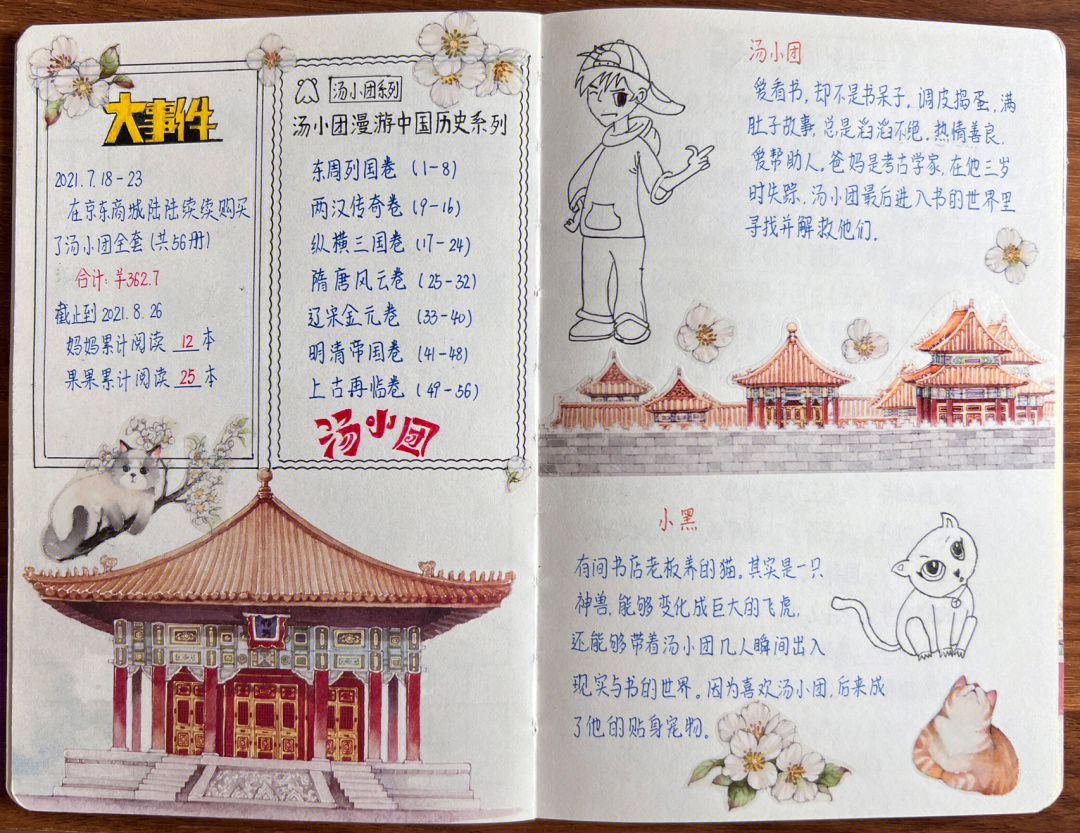 大事件
2021.7.18-23
在京东商城陆陆续续购买
了汤小团全套(共56册)
合计:¥362.7
截止到2021.8.26
妈妈累计阅读 12 本
果果累计阅读 25 本
汤小团系列
汤小团漫游中国历史系列
东周列国卷 (1-8)
两汉传奇卷 (9-16)
纵横三国卷 (17-24)
隋唐风云卷 (25-32)
辽宋金元卷 (33-40)
明清帝国卷 (41-48)
上古再临卷 (49-56)
汤小团
汤小团
爱看书,却不是书呆子。调皮捣蛋,满
肚子故事,总是滔滔不绝。热情善良,
爱帮助人。爸妈是考古学家,在他三岁
时失踪。汤小团最后进入书的世界里
寻找并解救他们。
小黑
有间书店老板养的猫。其实是一只
神兽,能够变化成巨大的飞虎,
还能够带着汤小团几人瞬间出入
现实与书的世界。因为喜欢汤小团,后来成
了他的贴身宠物。